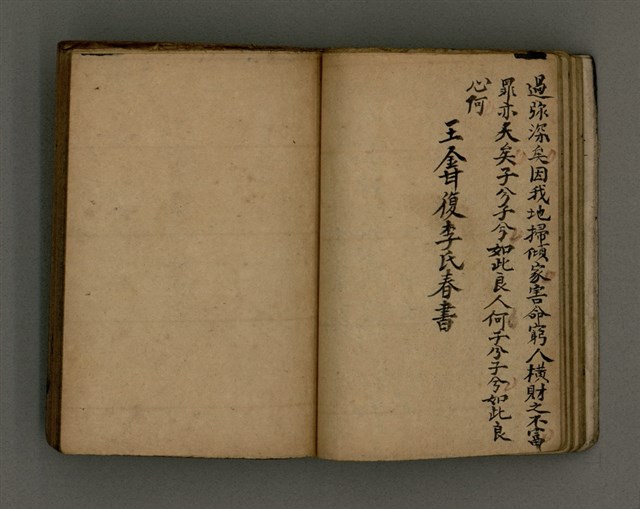 過弥深矣因我地掃傾家害命窮人橫財之不富
罪亦天矣子兮子兮如此良人何子兮子兮如此良
心何
王會復李氏春書